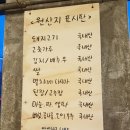 <원산지 표시판>
돼지고기 국내산
고춧가루 국내산
김치/배추 국내산
쌀 국내산
멸치/다시마 국내산
된장/고추장 국내산
마늘, 파, 양파 국내산
국내산